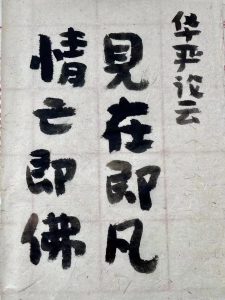 华严论云
見在即凡
情亡即佛